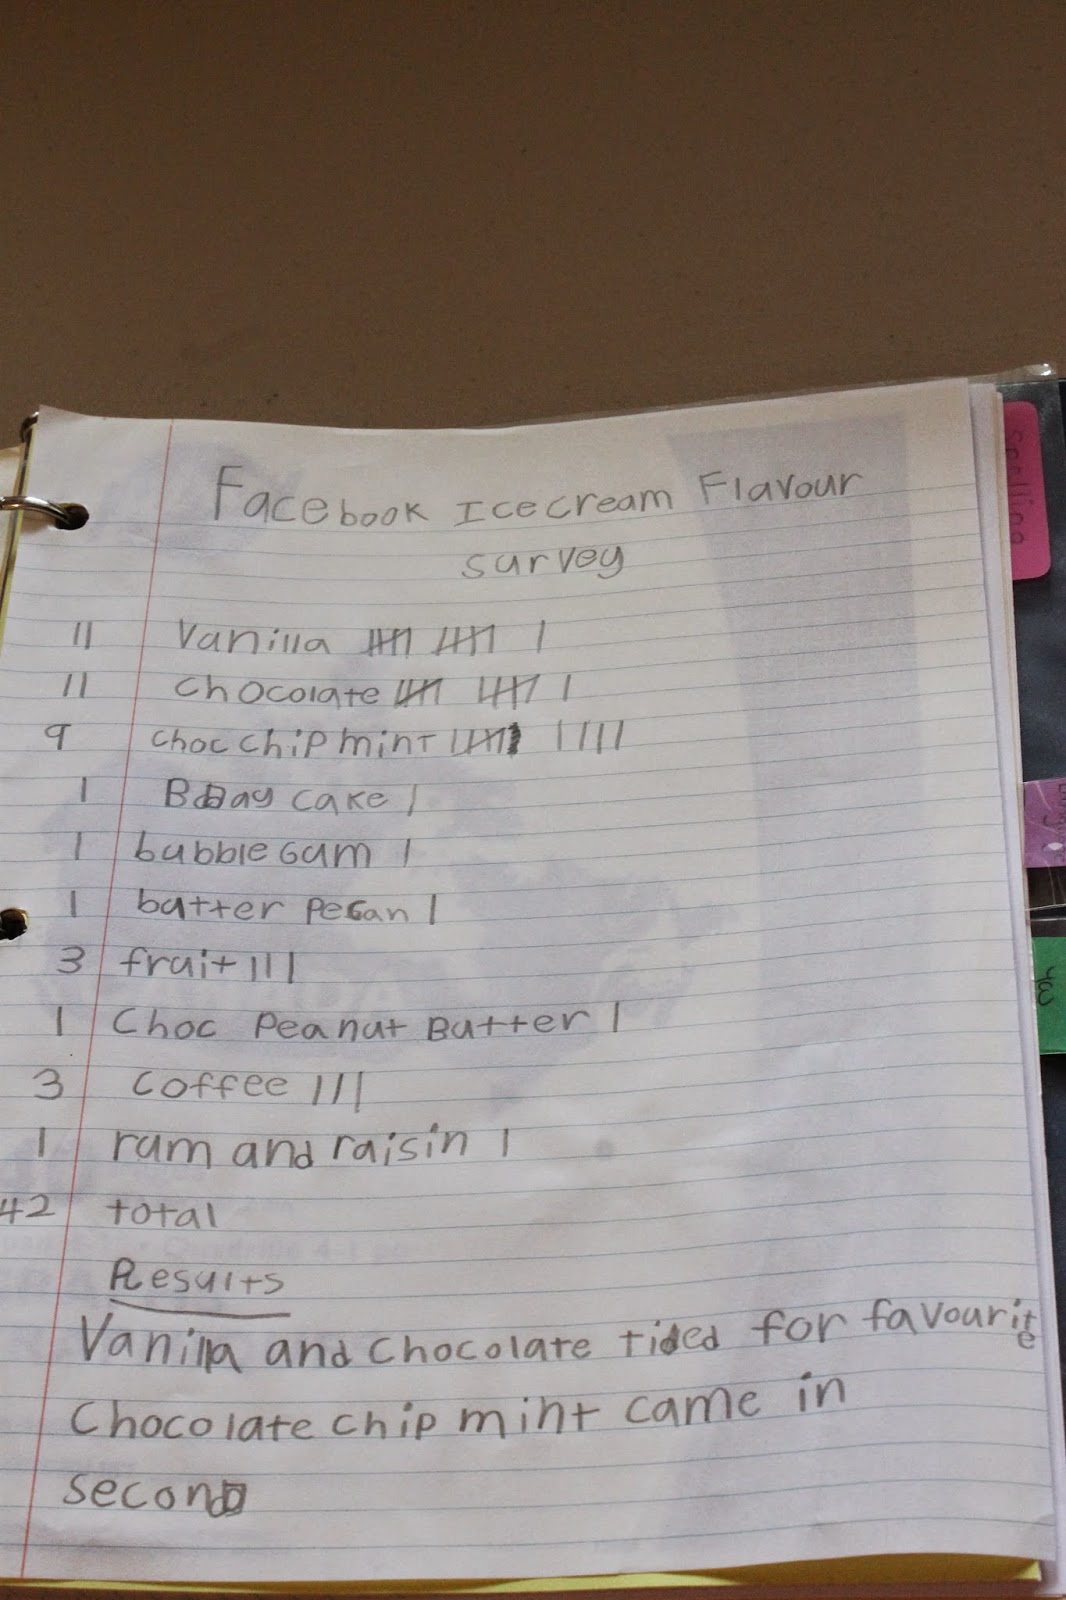 Facebook Icecream Flavour
survey
11 Vanilla 卌 卌 |
11 chocolate 卌 卌 |
9 choc chip mint 卌 ||||
1 Bday cake |
1 bubble Gum |
1 butter Pecan |
3 fruit |||
1 Choc Peanut Butter |
3 coffee |||
1 rum and raisin |
42 total
Results
Vanilla and chocolate tided for favourite
Chocolate chip mint came in
second
Spelling